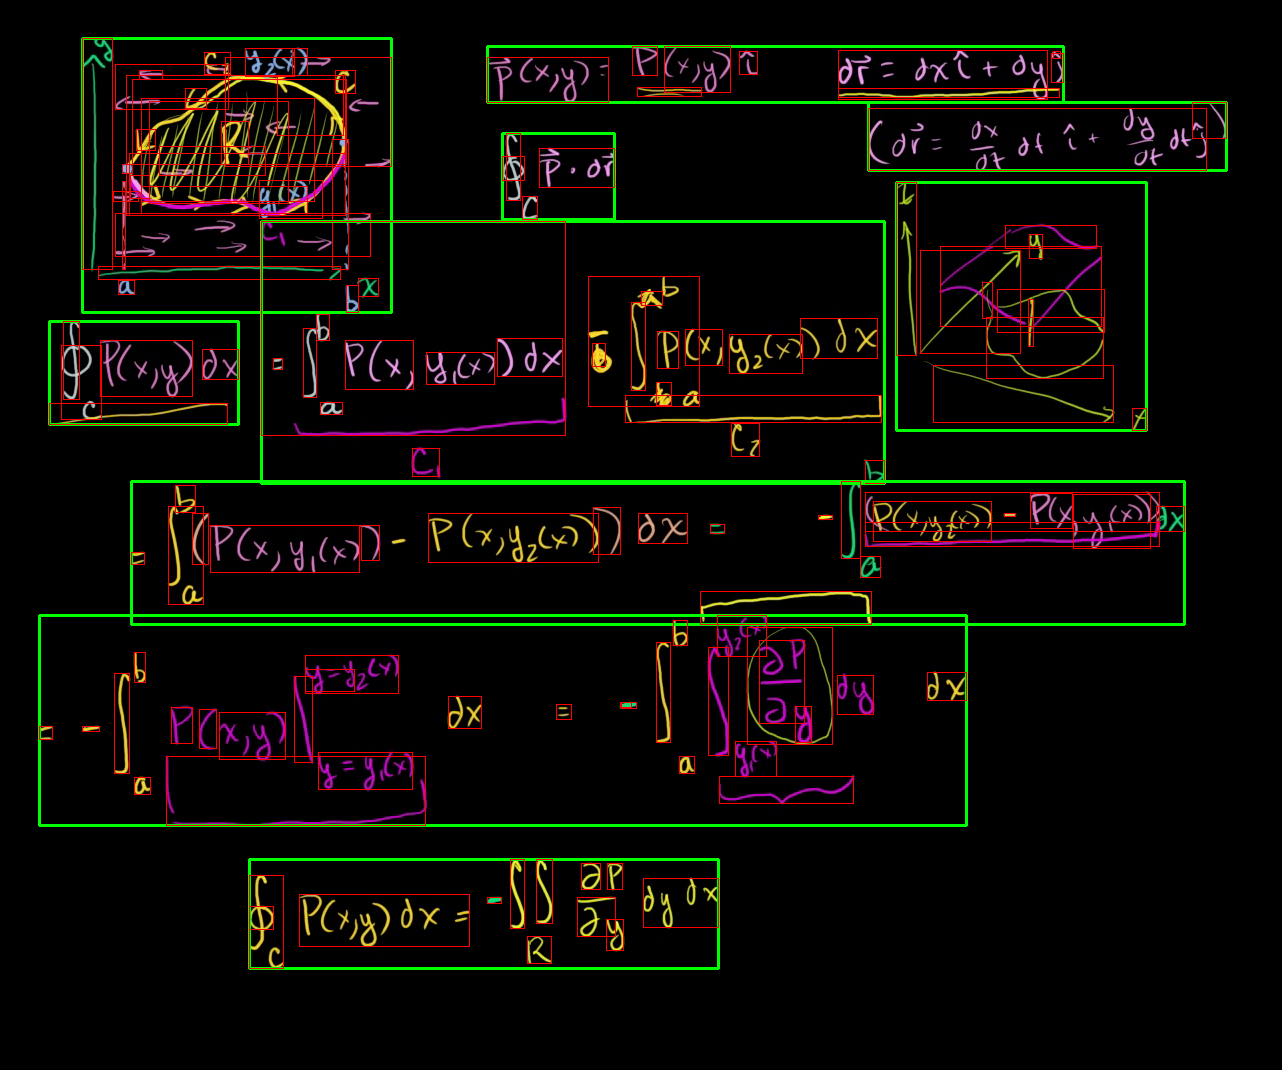 y C₂ y₂(x) C
R
y₁(x)
C₁
a b x
P⃗(x,y) = P(x,y) î dr⃗ = dx î + dy ĵ
(dr⃗ = dx/dt dt î + dy/dt dt ĵ)
∮_C P⃗ · dr⃗
y
x
∮_C P(x,y) dx = ∫_a^b P(x, y₁(x)) dx - ∫_a^b P(x, y₂(x)) dx
C₁ C₂
= ∫_a^b (P(x, y₁(x)) - P(x, y₂(x))) dx = - ∫_a^b (P(x, y₂(x)) - P(x, y₁(x))) dx
= - ∫_a^b P(x,y) |_{y = y₁(x)}^{y = y₂(x)} dx = - ∫_a^b ∫_{y₁(x)}^{y₂(x)} ∂P/∂y dy dx
∮_C P(x,y) dx = - ∫∫_R ∂P/∂y dy dx